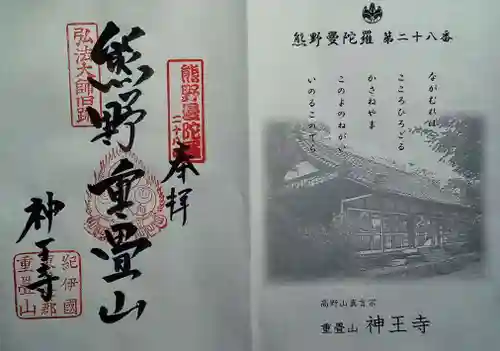 弘法大師旧跡
熊野曼陀羅
二十八番
奉拝
熊野重畳山
神王寺
紀伊國
重畳山
熊野曼陀羅 第二十八番
ながむれば
こころひろごる
かさねやま
このよのねがい
いのるこのてら
高野山真言宗
重畳山 神王寺